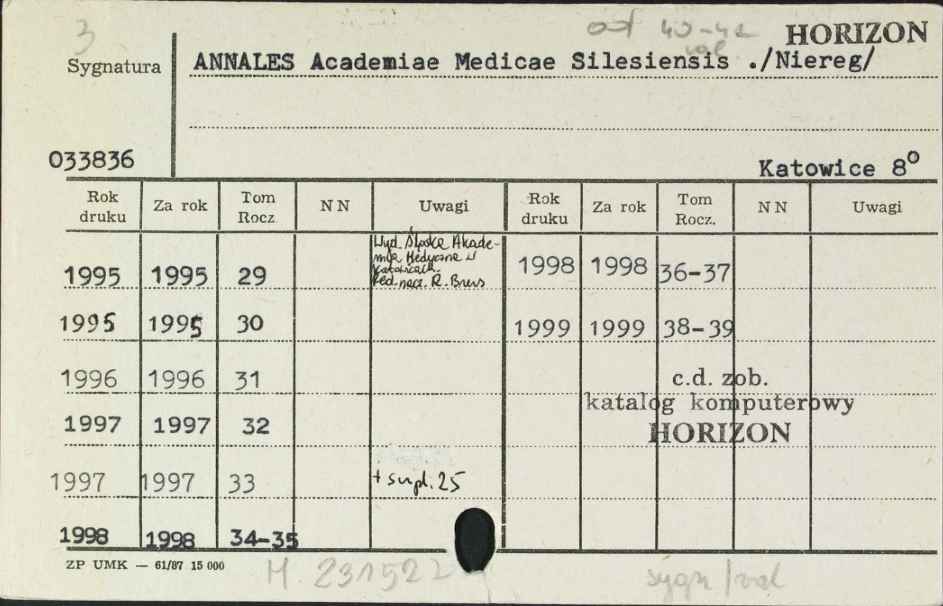 3 od 40-42 HORIZON
vol
Sygnatura ANNALES Academiae Medicae Silesiensis ./Niereg/
033836 Katowice 8°
Rok druku Za rok Tom Rocz. NN Uwagi Rok druku Za rok Tom Rocz. NN Uwagi
Wyd. Śląska Akade-
mia Medyczna w
Katowicach.
Red. nacz. R. Brus
1995 1995 29 1998 1998 36-37
1995 1995 30 1999 1999 38-39
1996 1996 31 c.d. zob.
katalog komputerowy
1997 1997 32 HORIZON
1997 1997 33 + supl. 25
1998 1998 34-35
ZP UMK — 61/87 15 000 M. 231522 sygn/vol